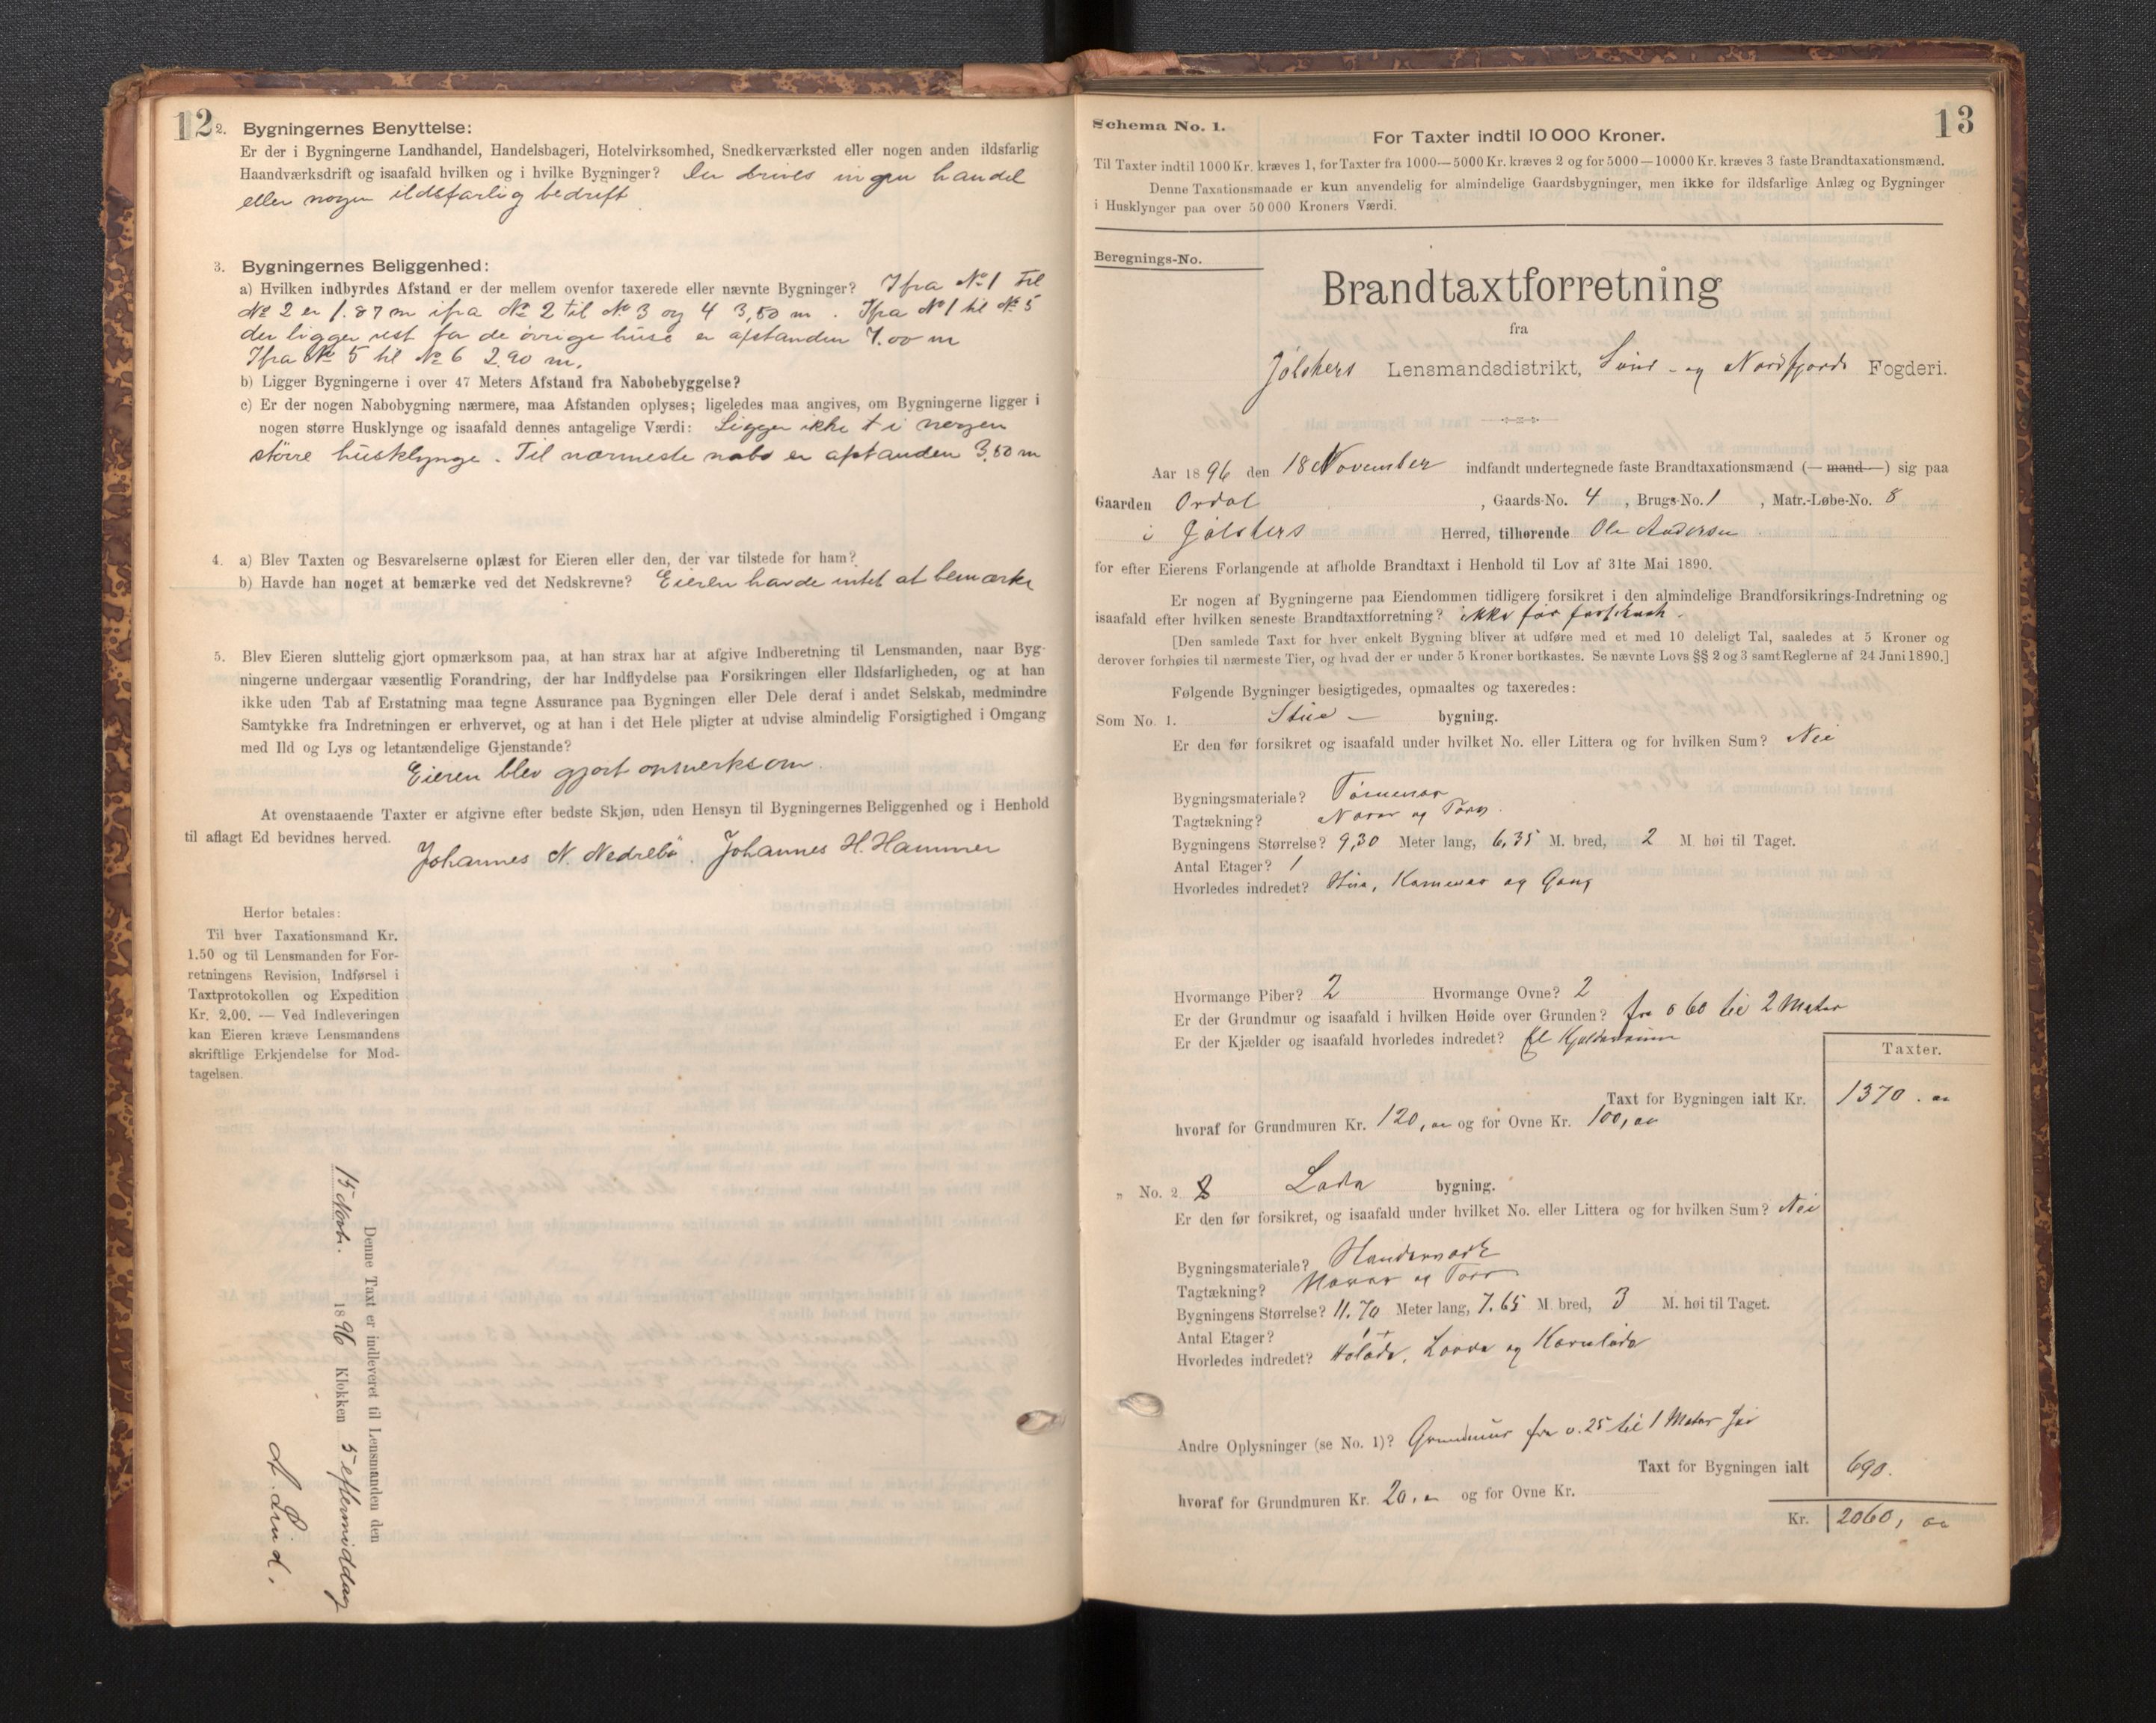 12
2. Bygningernes Benyttelse:
Er der i Bygningerne Landhandel, Handelsbageri, Hotelvirksomhed, Snedkerværksted eller nogen anden ildsfarlig
Haandværksdrift og isaafald hvilken og i hvilke Bygninger? Der drives ingen handel
eller nogen ildsfarlig bedrift
3. Bygningernes Beliggenhed:
a) Hvilken indbyrdes Afstand er der mellem ovenfor taxerede eller nævnte Bygninger? Ifra No 1 til
No 2 er 1.87 m ifra No 2 til No 3 og 4 3,50 m. Ifra No 1 til No 5
der ligger vest for de øvrige huse er afstanden 7.00 m
Ifra No 5 til No 6 2,90 m.
b) Ligger Bygningerne i over 47 Meters Afstand fra Nabobebyggelse?
c) Er der nogen Nabobygning nærmere, maa Afstanden oplyses; ligeledes maa angives, om Bygningerne ligger i
nogen større Husklynge og isaafald dennes antagelige Værdi: Ligger ikke i nogen
større husklynge. Til nærmeste nabo er afstanden 3,50 m
4. a) Blev Taxten og Besvarelserne oplæst for Eieren eller den, der var tilstede for ham?
b) Havde han noget at bemærke ved det Nedskrevne? Eieren havde intet at bemærke
5. Blev Eieren sluttelig gjort opmærksom paa, at han strax har at afgive Indberetning til Lensmanden, naar Byg-
ningerne undergaar væsentlig Forandring, der har Indflydelse paa Forsikringen eller Ildsfarligheden, og at han
ikke uden Tab af Erstatning maa tegne Assurance paa Bygningen eller Dele deraf i andet Selskab, medmindre
Samtykke fra Indretningen er erhvervet, og at han i det Hele pligter at udvise almindelig Forsigtighed i Omgang
med Ild og Lys og letantændelige Gjenstande?
Eieren blev gjort opmerksom.
At ovenstaaende Taxter er afgivne efter bedste Skjøn, uden Hensyn til Bygningernes Beliggenhed og i Henhold
til aflagt Ed bevidnes herved.
Johannes N. Nedrebø. Johannes H. Hammer
Herfor betales:
Til hver Taxationsmand Kr.
1.50 og til Lensmanden for For-
retningens Revision, Indførsel i
Taxtprotokollen og Expedition
Kr. 2.00. — Ved Indleveringen
kan Eieren kræve Lensmandens
skriftlige Erkjendelse for Mod-
tagelsen.
Denne Taxt er indleveret til Lensmanden den
15 Novbr. 1896 Klokken 5 eftermiddag
13
Schema No. 1.
For Taxter indtil 10 000 Kroner.
Til Taxter indtil 1000 Kr. kræves 1, for Taxter fra 1000—5000 Kr. kræves 2 og for 5000—10000 Kr. kræves 3 faste Brandtaxationsmænd.
Denne Taxationsmaade er kun anvendelig for almindelige Gaardsbygninger, men ikke for ildsfarlige Anlæg og Bygninger
i Husklynger paa over 50 000 Kroners Værdi.
Beregnings-No.
Brandtaxtforretning
fra
Jølsters Lensmandsdistrikt, Sønd- og Nordfjords Fogderi.
Aar 1896 den 18 November indfandt undertegnede faste Brandtaxationsmænd (— mand —) sig paa
Gaarden Ordal, Gaards-No. 4, Brugs-No. 1, Matr.-Løbe-No. 8
i Jølsters Herred, tilhørende Ole Andersen
for efter Eierens Forlangende at afholde Brandtaxt i Henhold til Lov af 31te Mai 1890.
Er nogen af Bygningerne paa Eiendommen tidligere forsikret i den almindelige Brandforsikrings-Indretning og
isaafald efter hvilken seneste Brandtaxtforretning? ikke før forsikret.
[Den samlede Taxt for hver enkelt Bygning bliver at udføre med et med 10 deleligt Tal, saaledes at 5 Kroner og
derover forhøies til nærmeste Tier, og hvad der er under 5 Kroner bortkastes. Se nævnte Lovs §§ 2 og 3 samt Reglerne af 24 Juni 1890.]
Følgende Bygninger besigtigedes, opmaaltes og taxeredes:
Som No. 1. Stue- bygning.
Er den før forsikret og isaafald under hvilket No. eller Littera og for hvilken Sum? Nei
Bygningsmateriale? Tømmer
Tagtækning? Næver og Torv.
Bygningens Størrelse? 9,30 Meter lang, 6,35 M. bred, 2 M. høi til Taget.
Antal Etager? 1
Hvorledes indredet? Stue, Kammer og Gang
Hvormange Piber? 2 Hvormange Ovne? 2
Er der Grundmur og isaafald i hvilken Høide over Grunden? fra 0 60 til 2 Meter
Er der Kjælder og isaafald hvorledes indredet? Et Kjælderrum
Taxter.
Taxt for Bygningen ialt Kr. 1370.00
hvoraf for Grundmuren Kr. 120,00 og for Ovne Kr. 100,00
" No. 2 2 Lada bygning.
Er den før forsikret, og isaafald under hvilket No. eller Littera og for hvilken Sum? Nei
Bygningsmateriale?
Tagtækning? Næver og Torv
Bygningens Størrelse? 11.70 Meter lang, 7.65 M. bred, 3 M. høi til Taget.
Antal Etager? 1
Hvorledes indredet? Hølade, Loove og Kornlade
Andre Oplysninger (se No. 1)? Grundmur fra 0.25 til 1 Meter
Taxt for Bygningen ialt 690.
hvoraf for Grundmuren Kr. 20,00 og for Ovne Kr.
Kr. 2060,00